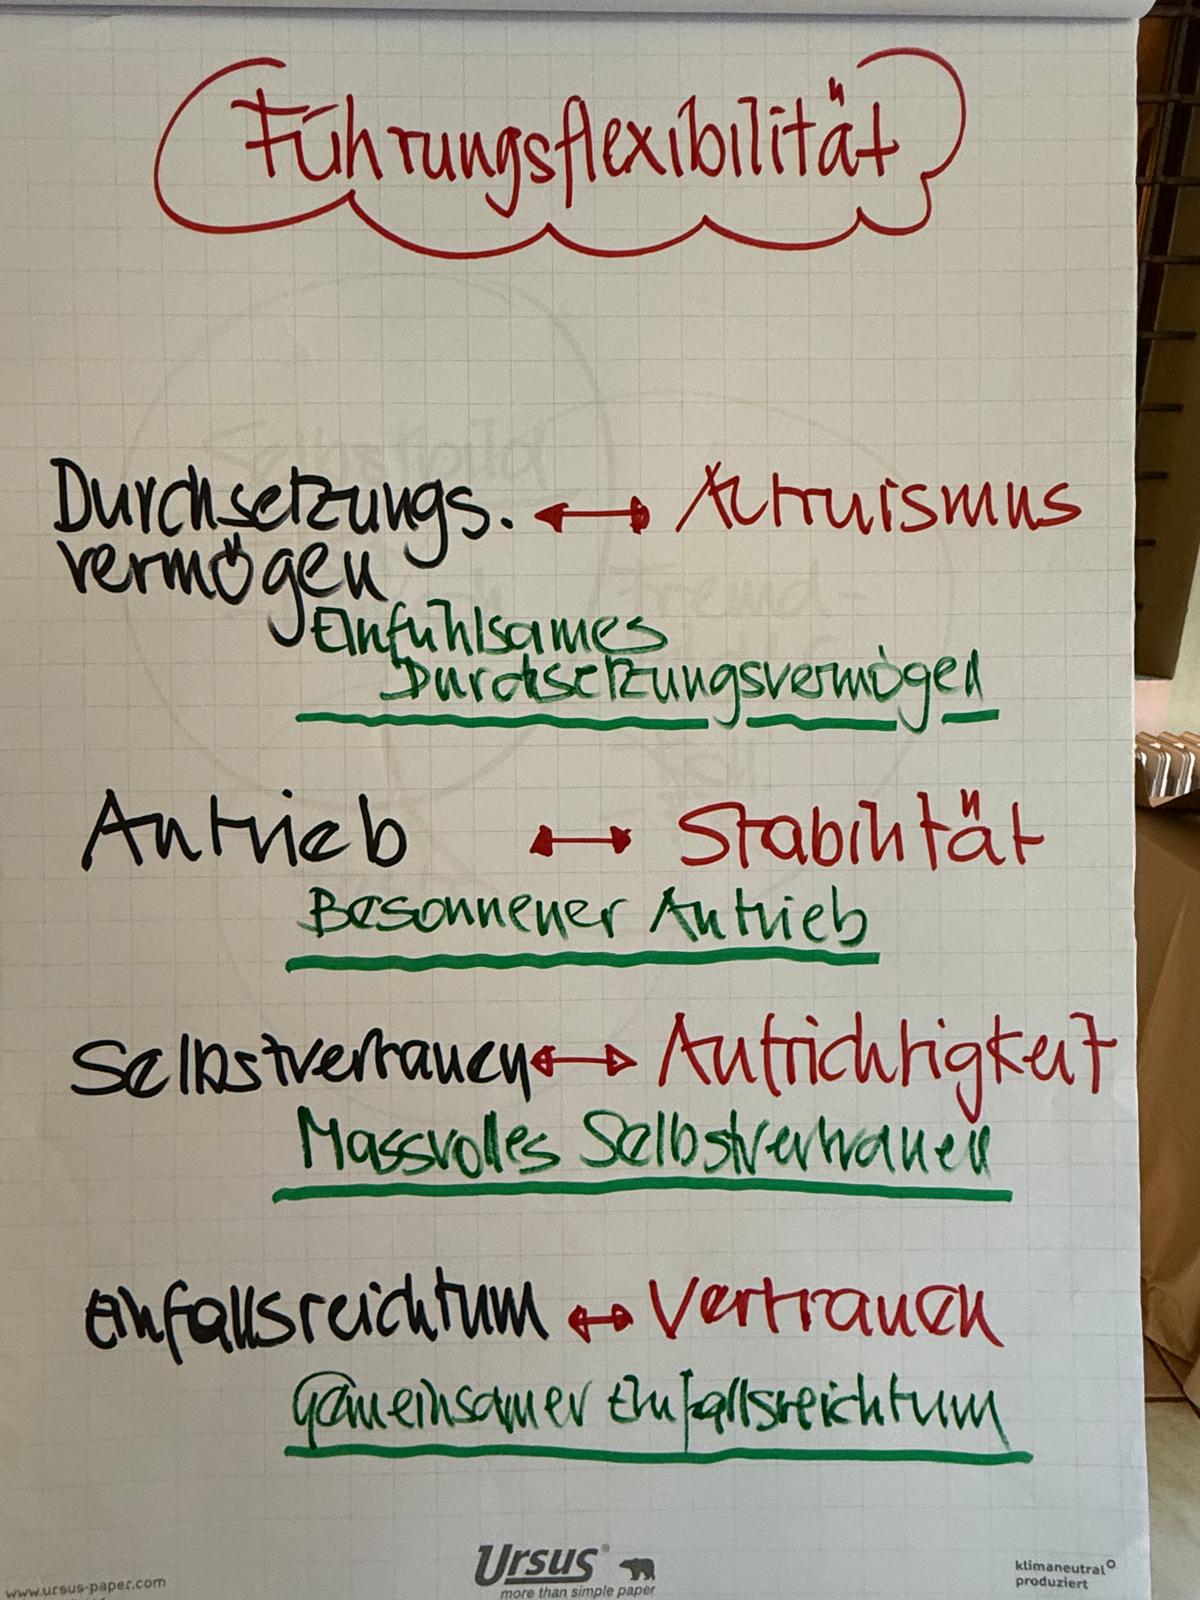 Führungsflexibilität
Durchsetzungs. ↔ Altruismus
vermögen
Einfühlsames
Durchsetzungsvermögen
Antrieb ↔ Stabilität
Besonnener Antrieb
Selbstvertrauen ↔ Aufrichtigkeit
Massvolles Selbstvertrauen
Einfallsreichtum ↔ Vertrauen
Gemeinsamer Einfallsreichtum
Ursus®
more than simple paper
www.ursus-paper.com
klimaneutral
produziert